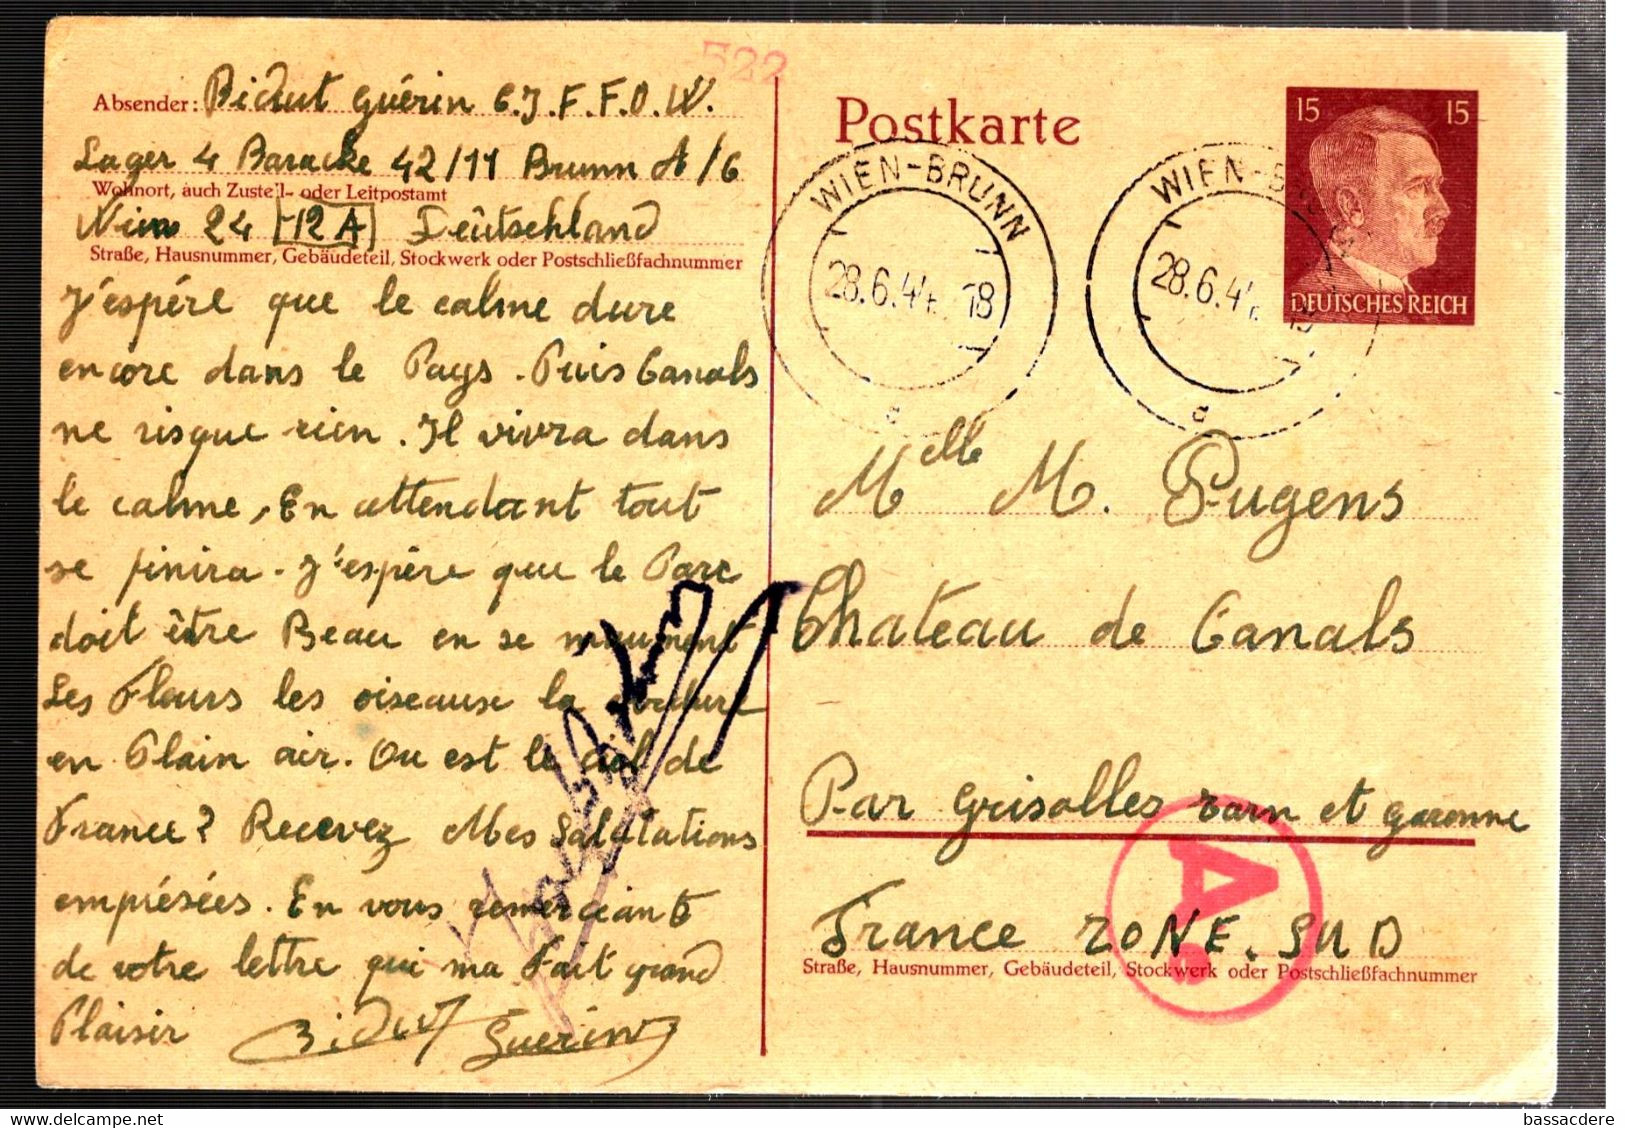 522
Absender: Bidut Guérin C.J.F.F.O.W.
Lager 4 Baracke 42/11 Brunn A/G
Wohnort, auch Zustell- oder Leitpostamt
Wien 24 12A Deutschland
Straße, Hausnummer, Gebäudeteil, Stockwerk oder Postschließfachnummer
J'espére que le calme dure
encore dans le Pays. Puis Canals
ne risque rien. Il vivra dans
le calme, En attendant tout
se finira. J'espère que le Parc
doit être Beau en se moument
Les Fleurs les oiseause la
en Plain air. Ou est le de
France? Recevez Mes Salutations
emprésées. En vous remerciant
de votre lettre qui ma Fait grand
Plaisir Bidut Guérin
Postkarte
15 15
DEUTSCHES REICH
WIEN-BRUNN
28.6.44 18
a
WIEN-BRUNN
28.6.44 18
a
Melle M. Pugens
Chateau de Canals
Par Grisolles Tarn et garonne
France ZONE. SUD
Straße, Hausnummer, Gebäudeteil, Stockwerk oder Postschließfachnummer
A.
delcampe.net
bassacdere